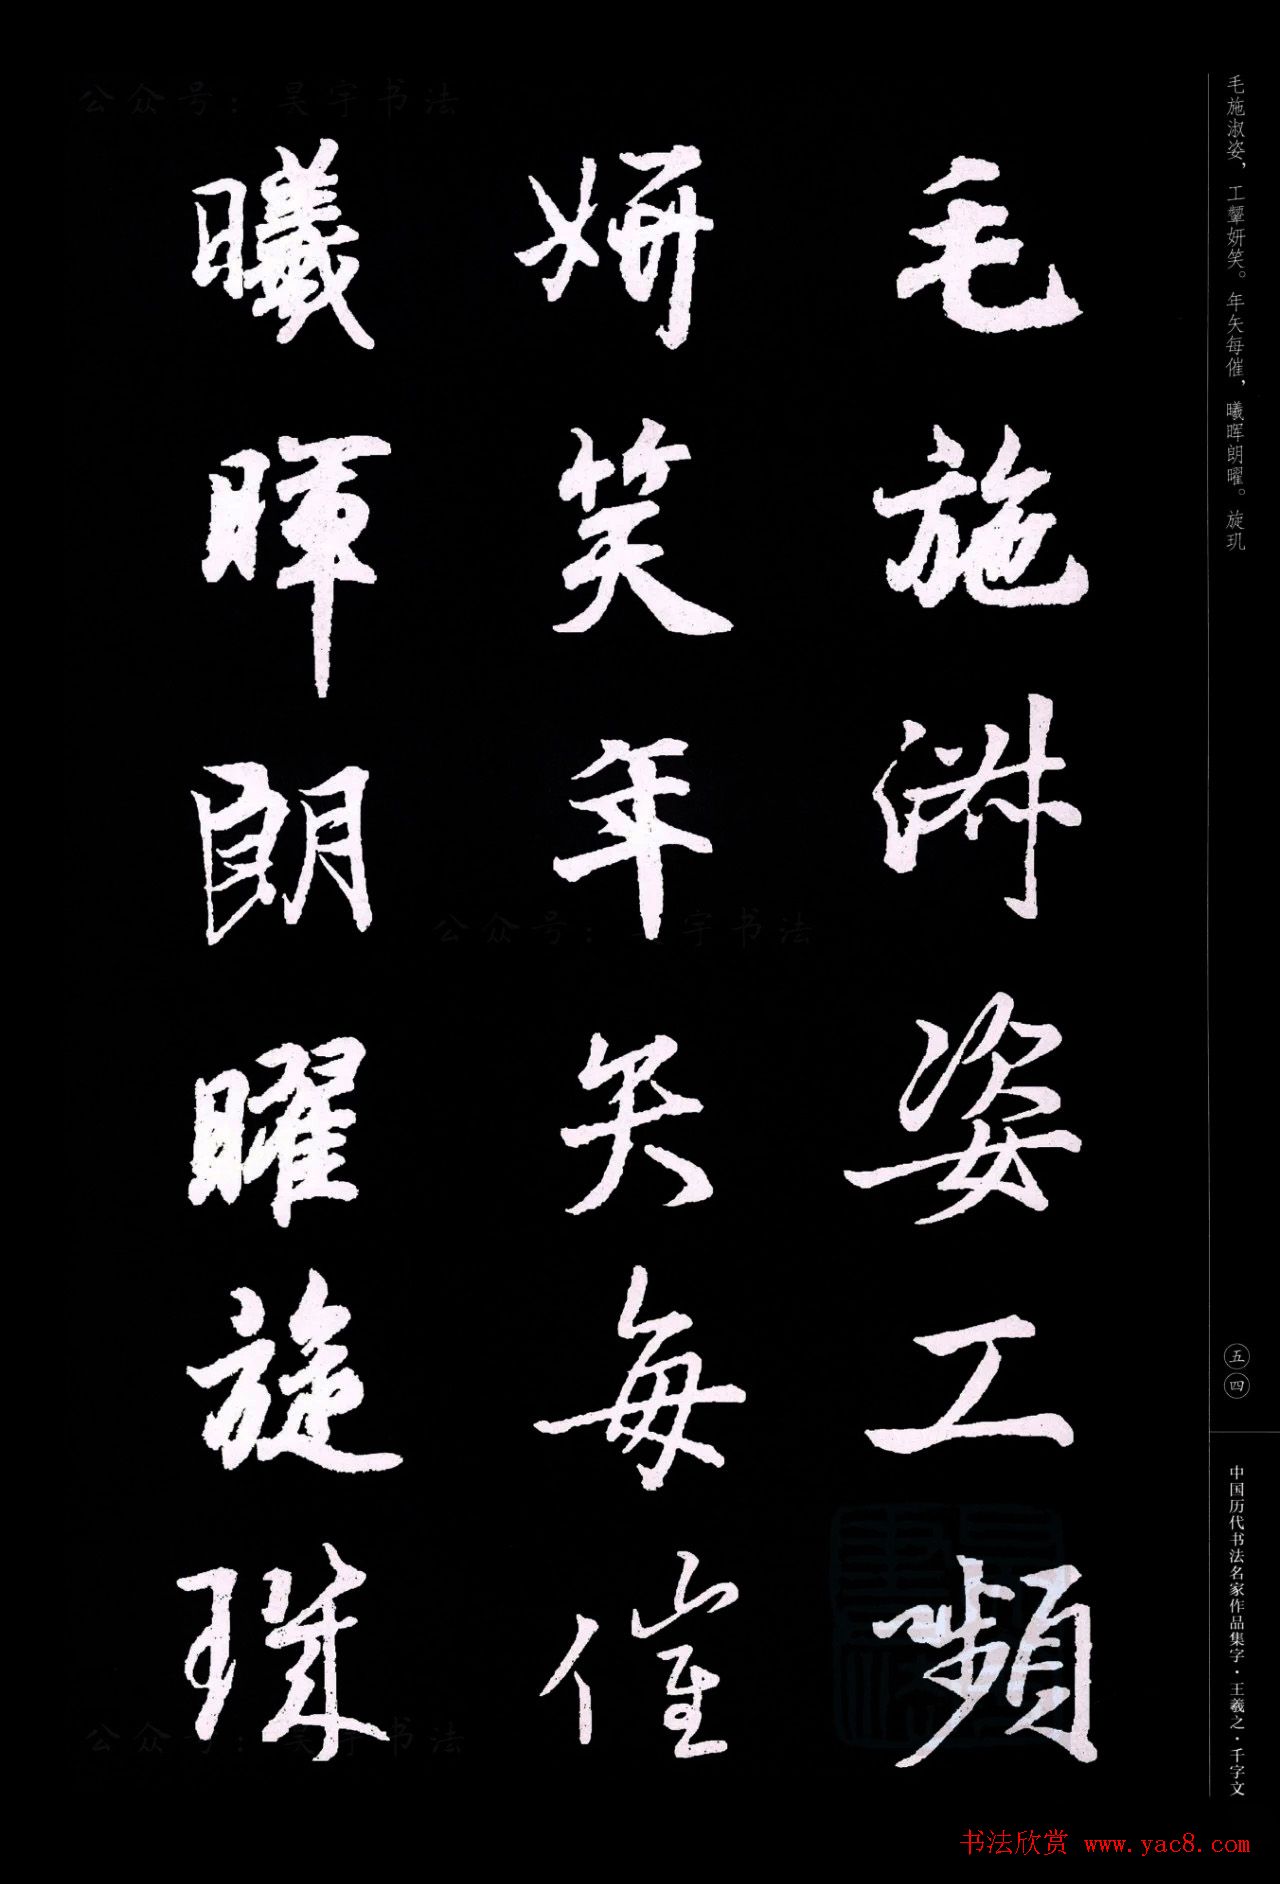 毛施淑姿工嚬
妍笑年矢每催
曦暉朗曜旋璣
毛施淑姿，工颦妍笑。年矢每催，曦晖朗曜。旋玑
五四
中国历代书法名家作品集字·王羲之·千字文
公众号：昊宇书法
公众号：昊宇书法
公众号：昊宇书法
书法欣赏 www.yac8.com